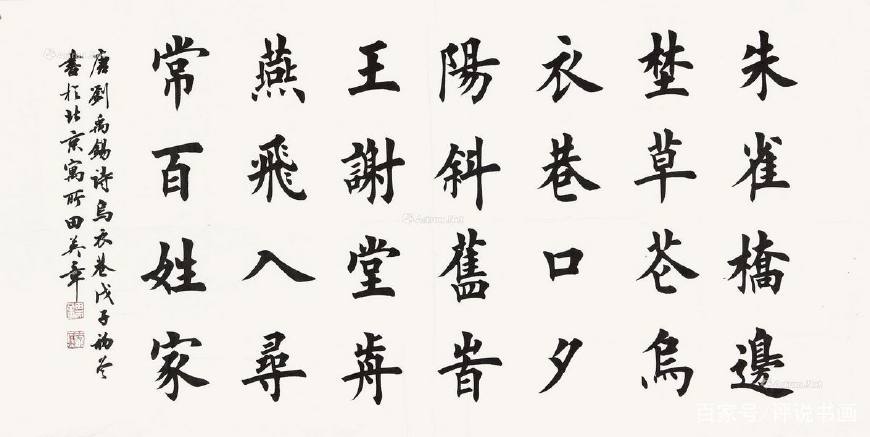 朱雀橋邊
埜草芲烏
衣巷口夕
陽斜舊旹
王謝堂歬
燕飛入尋
常百姓家
唐劉禹錫詩烏衣巷戊子初冬
書於北京寓所田英章
Artron.Net
百家号/评说书画